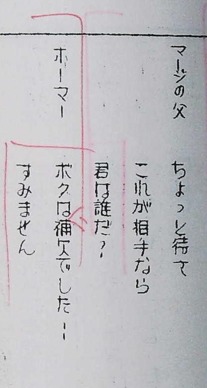 マージの父　ちょっと待て
これが相手なら
君は誰だ？
ホーマー　ボクは補欠でした！
すみません